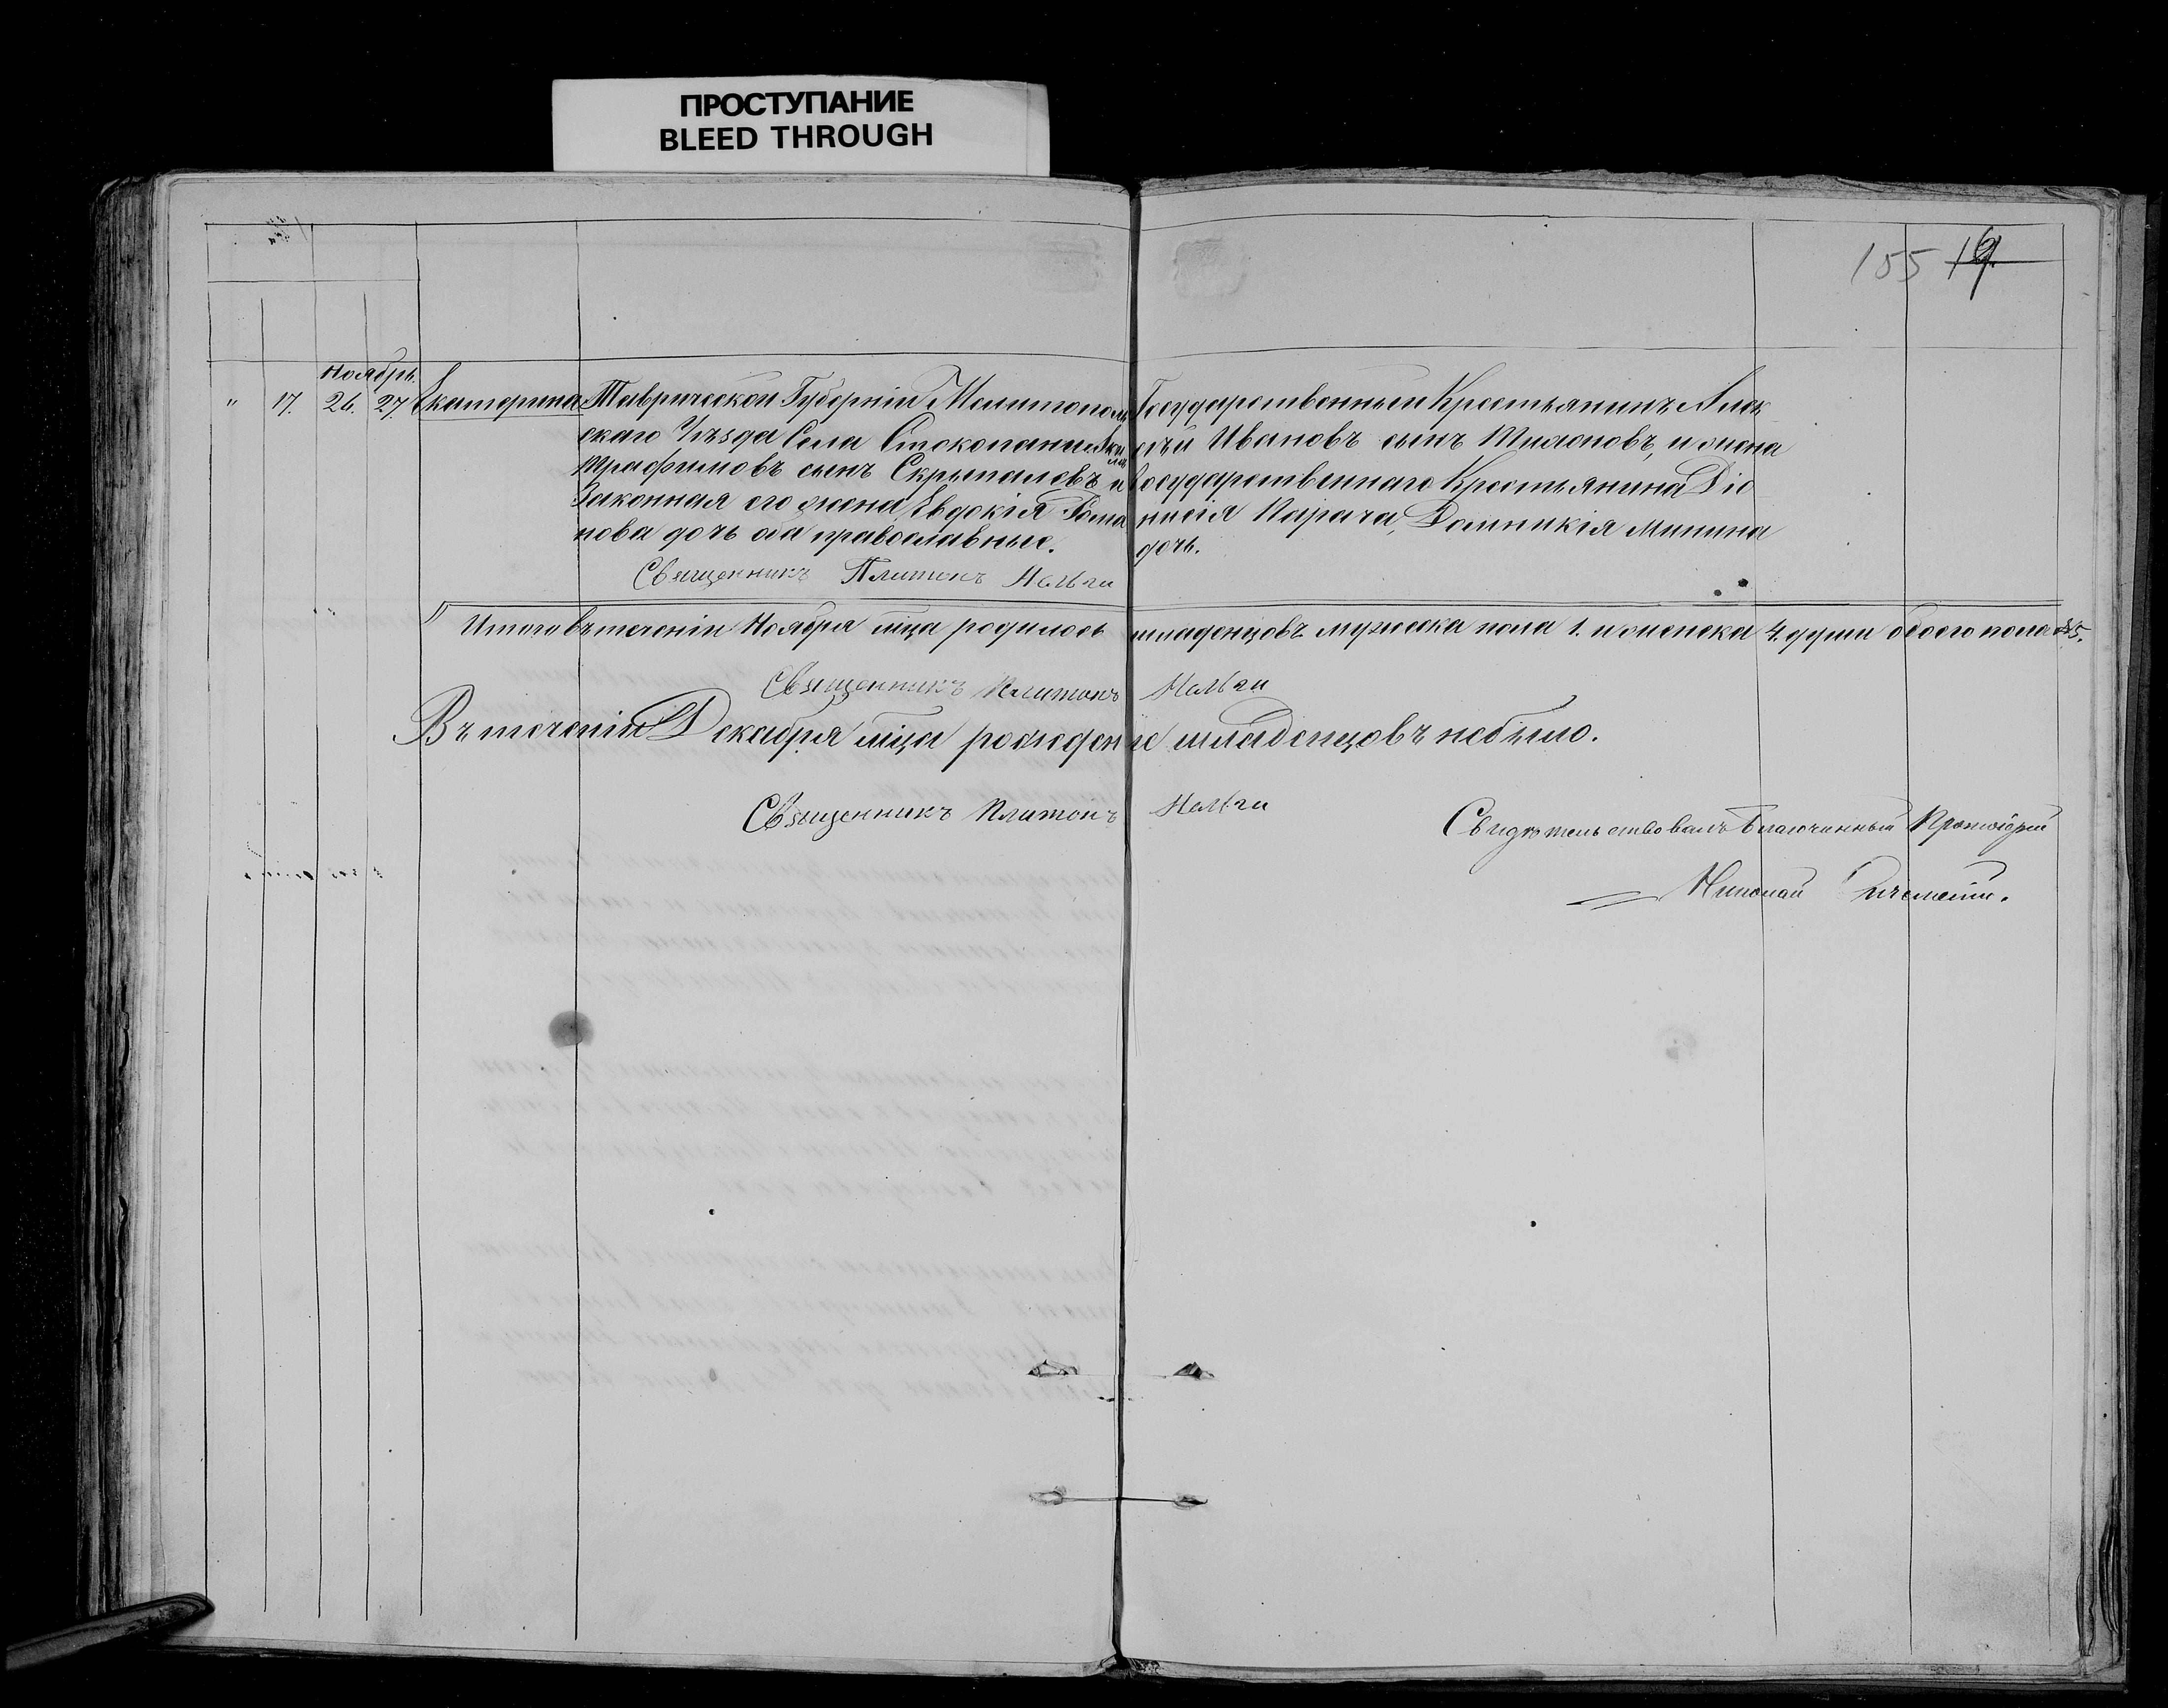 ПРОСТУПАНИЕ
BLEED THROUGH
155 19.
Ноябрь.
" 17. 26. 27. Екатерина
Таврической Губерніи Мелитополь
скаго Уѣзда Села Стокопани
Трафимовъ сынъ Скрыпалевъ и
Законная его жена Евдокія Рома
нова дочь оба православные.
Священникъ Платонъ
Государственный Крестьянинъ Алек
сѣй Ивановъ сынъ Тихоновъ, и жена
Государственнаго Крестьянина Діо
нисія Карача, Домникія Минина
дочь.
Итого въ теченіи Ноября мѣца родилось младенцовъ мужеска пола 1. и женска 4. души обоего пола 5.
Священникъ Платонъ
Въ теченіи Декабря мѣца рожденіе младенцовъ небыло.
Священникъ Платонъ
Свидѣтельствовалъ Благочинный Протоіерей
Николай